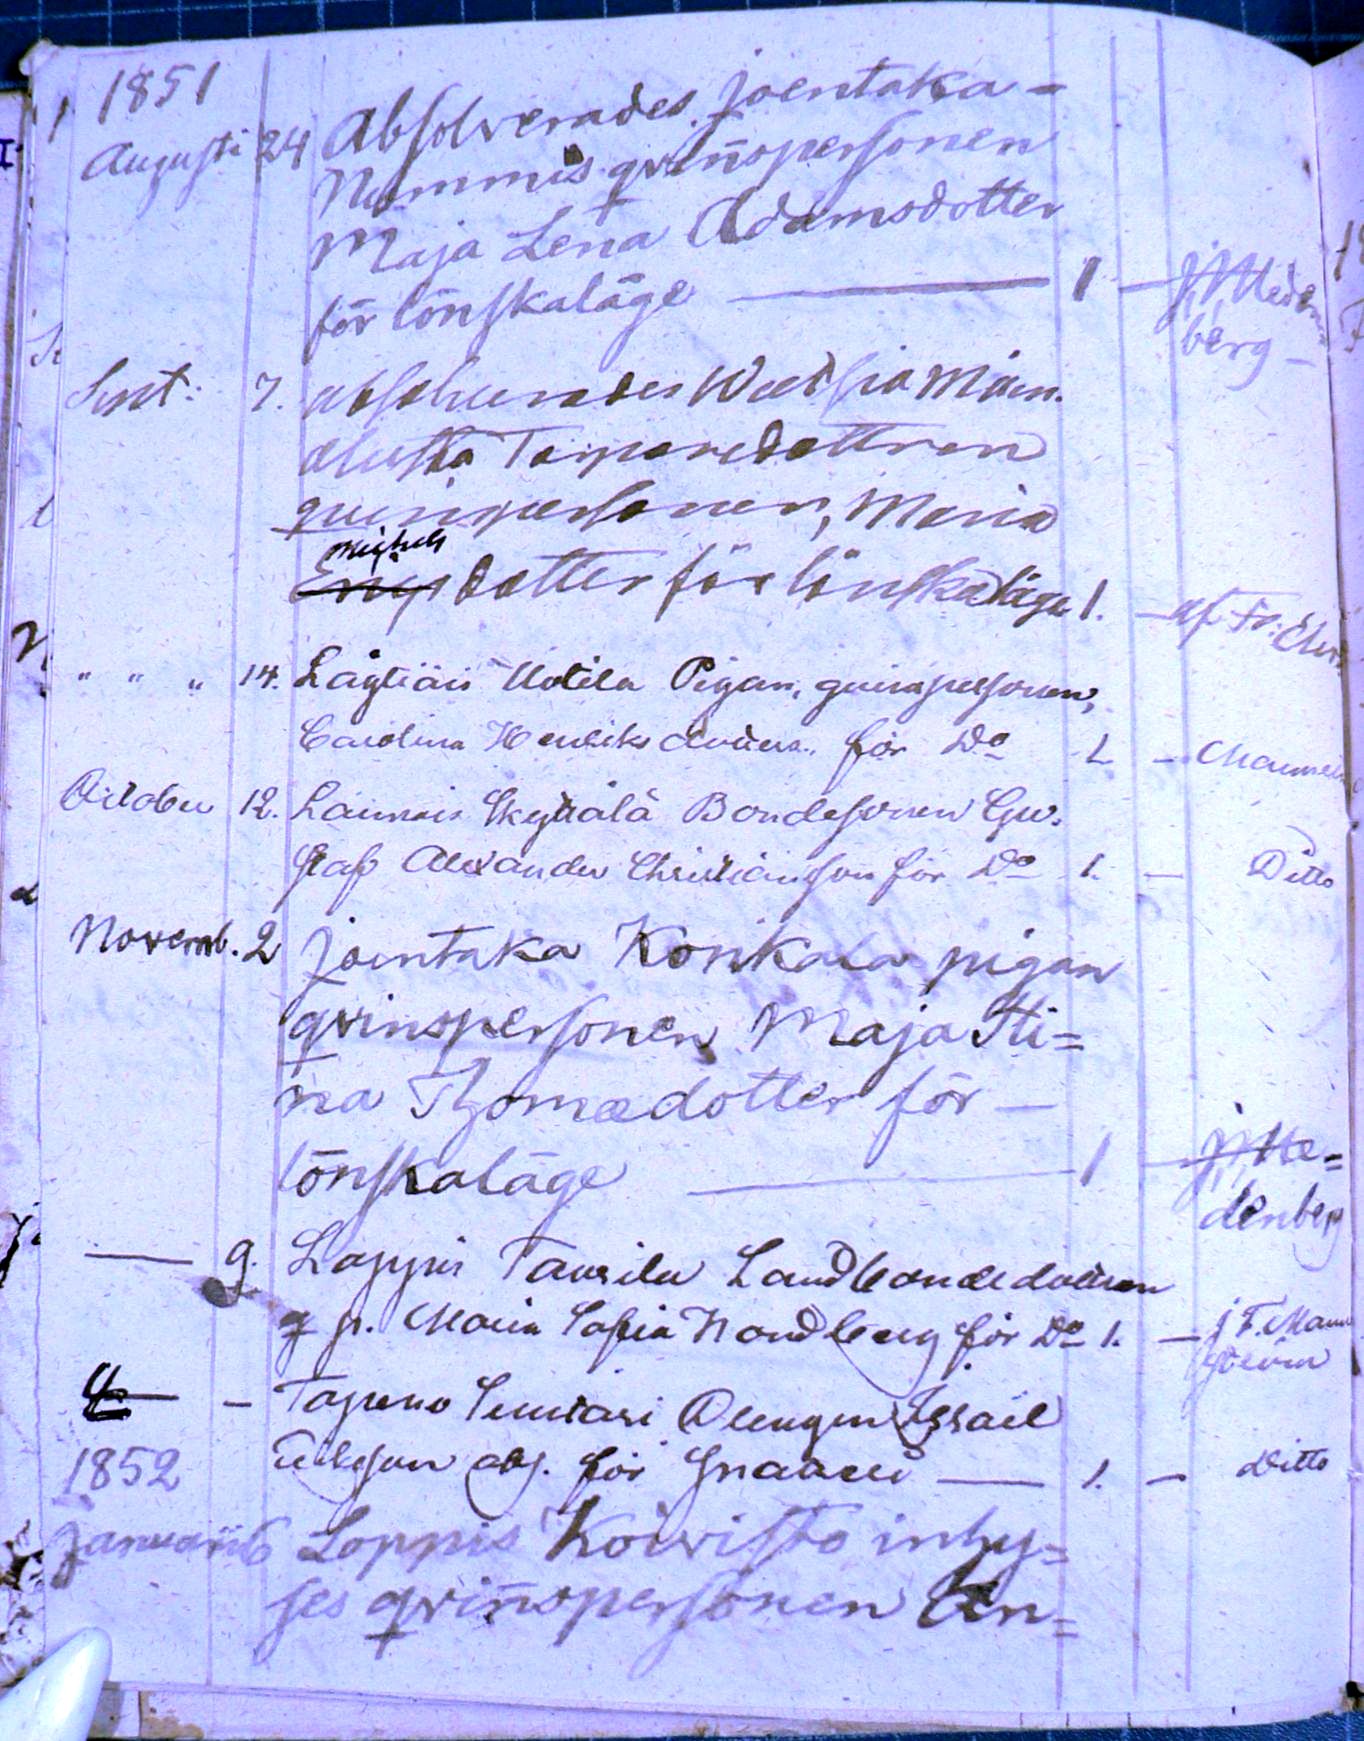 1851
Augusti 24 Absolverades. Joentaka=
Nummis qvinspersonen
Maja Lena Adamsdotter
för lönskaläge — 1 — Meden
berg —
Sept. 7. absolverades
dottren
quinspersonen, Maria
Michels
dotter för lönskaläge 1. — af
" " " 14. Uotila Pigan, quinspersonen,
Carolina Henriks för Do 1 —
October 12. Skyttälä Bondesonen Gu.
staf Alexander Christiansson för Do 1. — Ditto
Novemb. 2 Joentaka Konkala pigan
qvinspersonen Maja Sti=
na Thomædotter för —
lönskaläge — 1 — J, Me=
denberg
— 9. Loppis Taurila Landbondedottren
q p. Maria Sofia Nordberg för Do 1. — J F. Mann
ström
— Topeno Drengen Israel
abs. för — 1. — Ditto
1852
Januarii 6 Loppis Koivisto inhy=
ses qvinspersonen An=